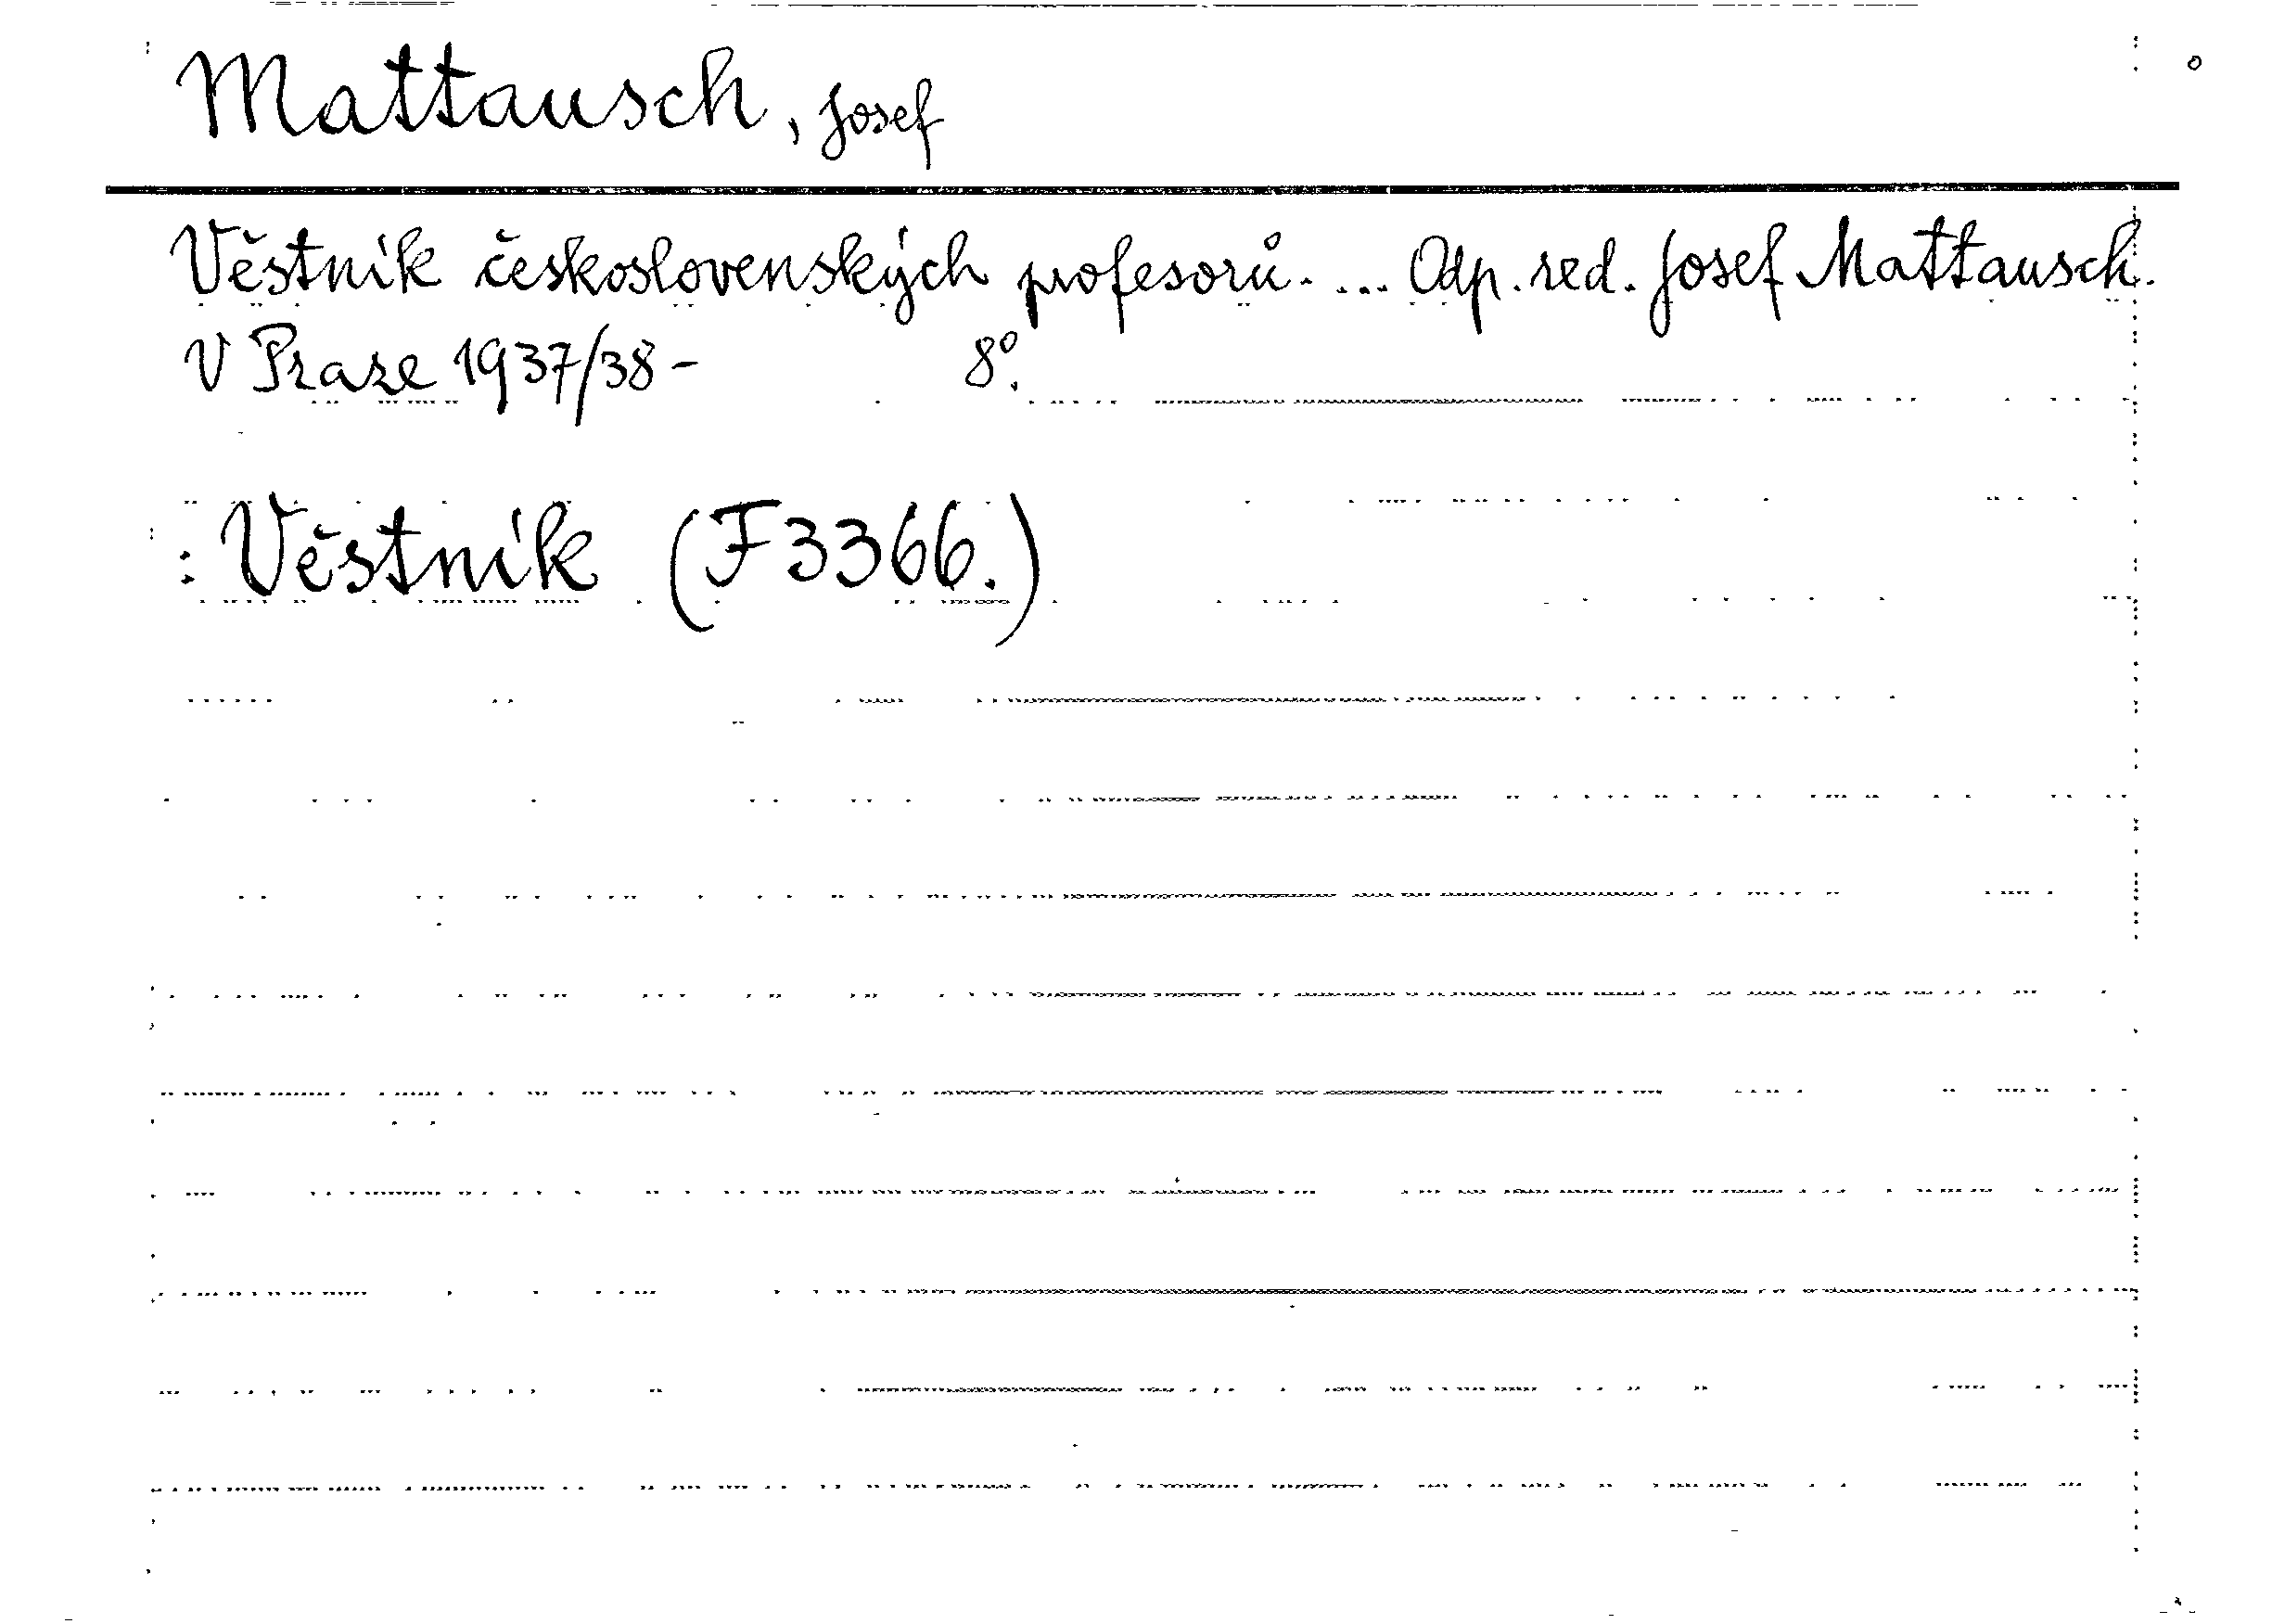 Mattausch, Josef
Věstník československých profesorů. ... Odp. red. Josef Mattausch.
V Praze 1937/38- 8°.
: Věstník (F 3366.)